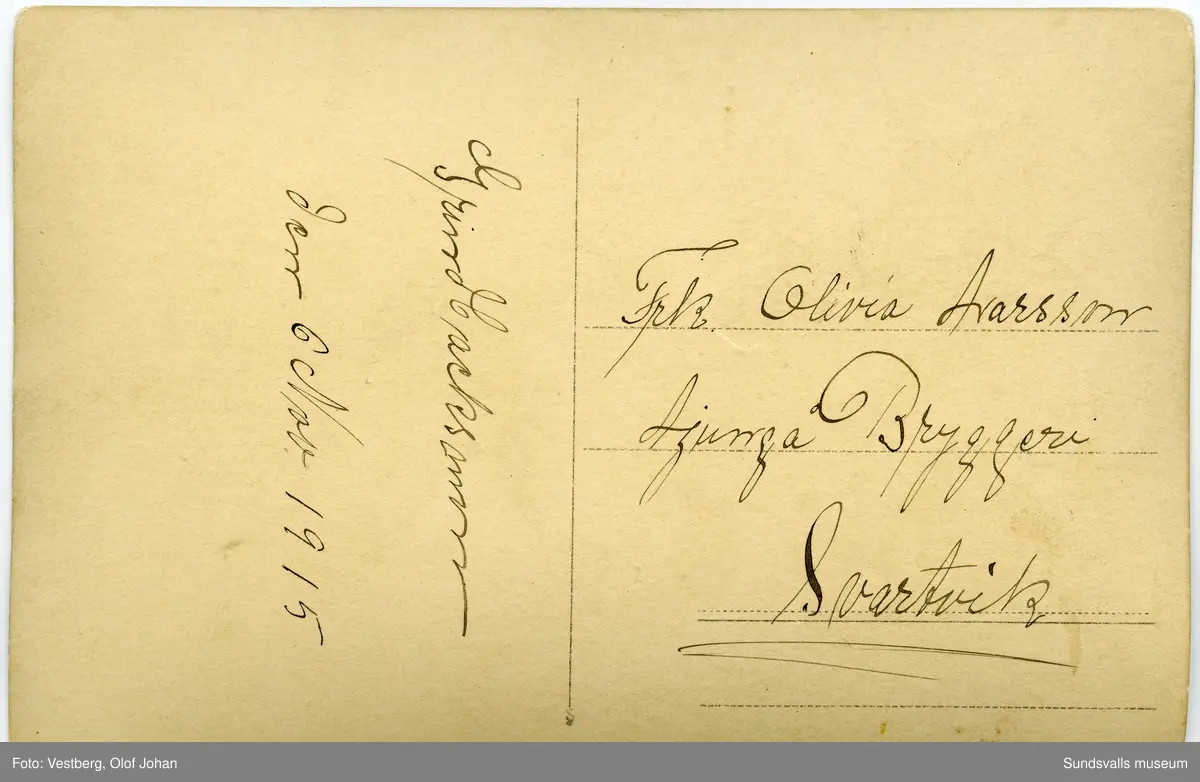 Den 6 Nov. 1915
Frk. Olivia
Ajunga Bryggeri
Svartvik
Foto: Vestberg, Olof Johan
Sundsvalls museum